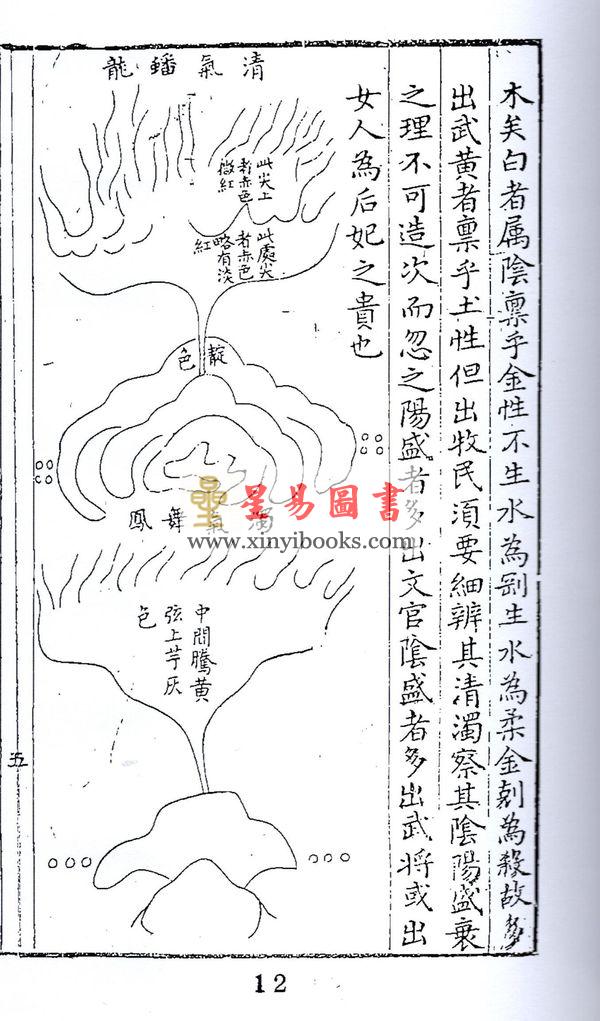 木矣白者属陰禀乎金性不生水為剛生水為柔金剋為殺故多
出武黃者禀乎土性但出牧民須要細辨其清濁察其陰陽盛衰
之理不可造次而忽之陽盛者多出文官陰盛者多出武将或出
女人為后妃之貴也
清氣蟠龍
此尖上
者赤色
微紅
此處尖
者赤色
略有淡
紅
靛色
濁氣舞鳳
中間騰黃
弦上芋灰
色
五
星易圖書
www.xinyibooks.com
12